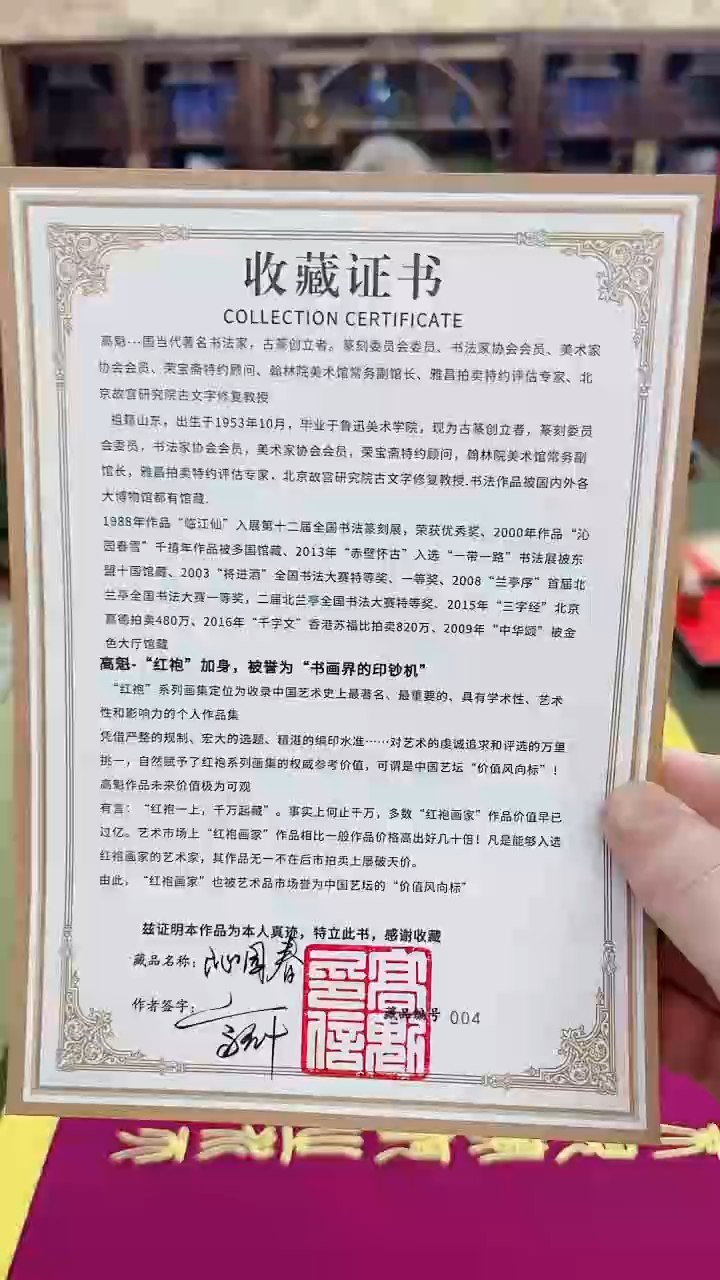 收藏证书
COLLECTION CERTIFICATE
高魁···国当代著名书法家，古篆创立者。篆刻委员会委员、书法家协会会员、美术家
协会会员、荣宝斋特约顾问、翰林院美术馆常务副馆长、雅昌拍卖特约评估专家、北
京故宫研究院古文字修复教授
祖籍山东，出生于1953年10月，毕业于鲁迅美术学院，现为古篆创立者，篆刻委员
会委员，书法家协会会员，美术家协会会员，荣宝斋特约顾问，翰林院美术馆常务副
馆长，雅昌拍卖特约评估专家、北京故宫研究院古文字修复教授.书法作品被国内外各
大博物馆都有馆藏.
1988年作品“临江仙”入展第十二届全国书法篆刻展，荣获优秀奖、2000年作品“沁
园春雪”千禧年作品被多国馆藏、2013年“赤壁怀古”入选“一带一路”书法展被东
盟十国馆藏、2003“将进酒”全国书法大赛特等奖、一等奖、2008“兰亭序”首届北
兰亭全国书法大赛一等奖，二届北兰亭全国书法大赛特等奖、2015年“三字经”北京
嘉德拍卖480万、2016年“千字文”香港苏福比拍卖820万、2009年“中华颂”被金
色大厅馆藏
高魁-“红袍”加身，被誉为“书画界的印钞机”
“红袍”系列画集定位为收录中国艺术史上最著名、最重要的、具有学术性、艺术
性和影响力的个人作品集
凭借严整的规制、宏大的选题、精湛的编印水准……对艺术的虔诚追求和评选的万里
挑一，自然赋予了红袍系列画集的权威参考价值，可谓是中国艺坛“价值风向标”！
高魁作品未来价值极为可观
有言：“红袍一上，千万起藏”。事实上何止千万，多数“红袍画家”作品价值早已
过亿。艺术市场上“红袍画家”作品相比一般作品价格高出好几十倍！凡是能够入选
红袍画家的艺术家，其作品无一不在后市拍卖上屡破天价。
由此，“红袍画家”也被艺术品市场誉为中国艺坛的“价值风向标”
兹证明本作品为本人真迹，特立此书，感谢收藏
藏品名称：沁园春
作者签字：
藏品编号 004